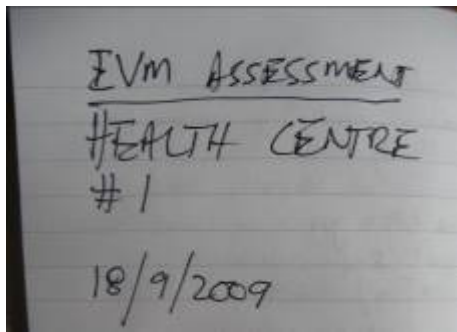 EVM ASSESSMENT
HEALTH CENTRE
# 1
18/9/2009